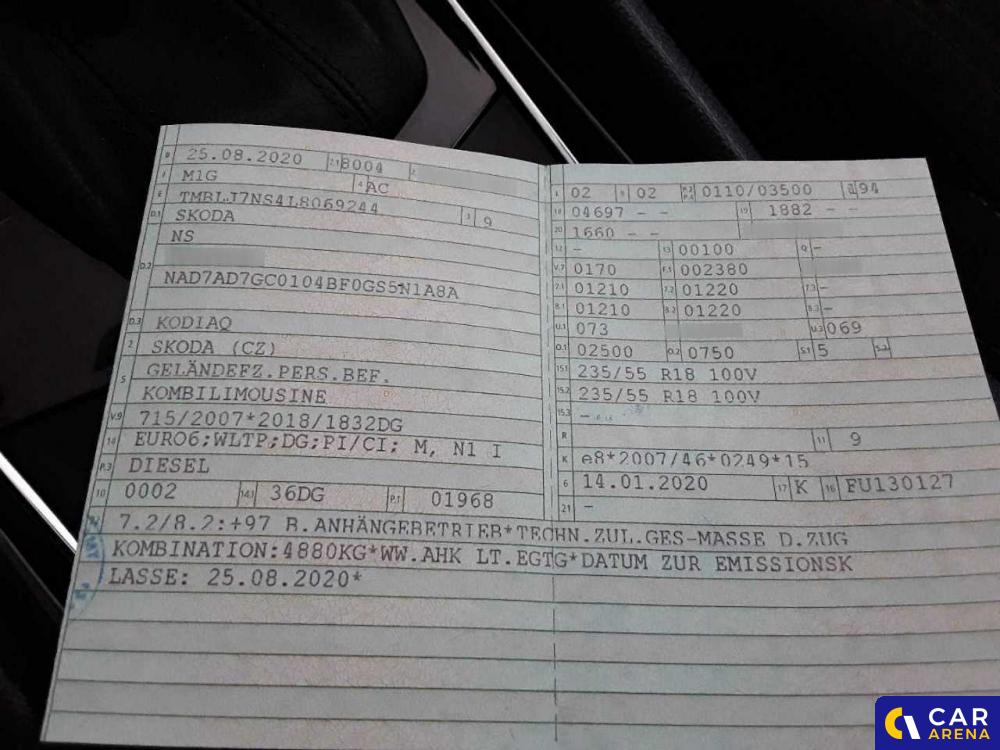 B 25.08.2020 2.1 8004 2
J M1G 4 AC
E TMBLJ7NS4L8069244 3 9
D.1 SKODA
NS
D.2
NAD7AD7GC0104BF0GS5N1A8A
D.3 KODIAQ
2 SKODA (CZ)
5 GELÄNDEFZ.PERS.BEF.
KOMBILIMOUSINE
V.9 715/2007*2018/1832DG
14 EURO6;WLTP;DG;PI/CI; M, N1 I
P.3 DIESEL
10 0002 14.1 36DG P.1 01968
L 02 9 02 P.2 P.4 0110/03500 T 194
18 04697 - - 19 1882 - -
20 1660 - -
12 - 13 00100 Q -
V.7 0170 F.1 002380
7.1 01210 7.2 01220 7.3 -
8.1 01210 8.2 01220 8.3 -
U.1 073 U.3 069
O.1 02500 O.2 0750 S.1 5 S.2
15.1 235/55 R18 100V
15.2 235/55 R18 100V
15.3 -
R 11 9
K e8*2007/46*0249*15
6 14.01.2020 17 K 16 FU130127
21 -
7.2/8.2:+97 B.ANHÄNGEBETRIEB*TECHN.ZUL.GES-MASSE D.ZUG
KOMBINATION:4880KG*WW.AHK LT.EGTG*DATUM ZUR EMISSIONSK
LASSE: 25.08.2020*
CAR
ARENA